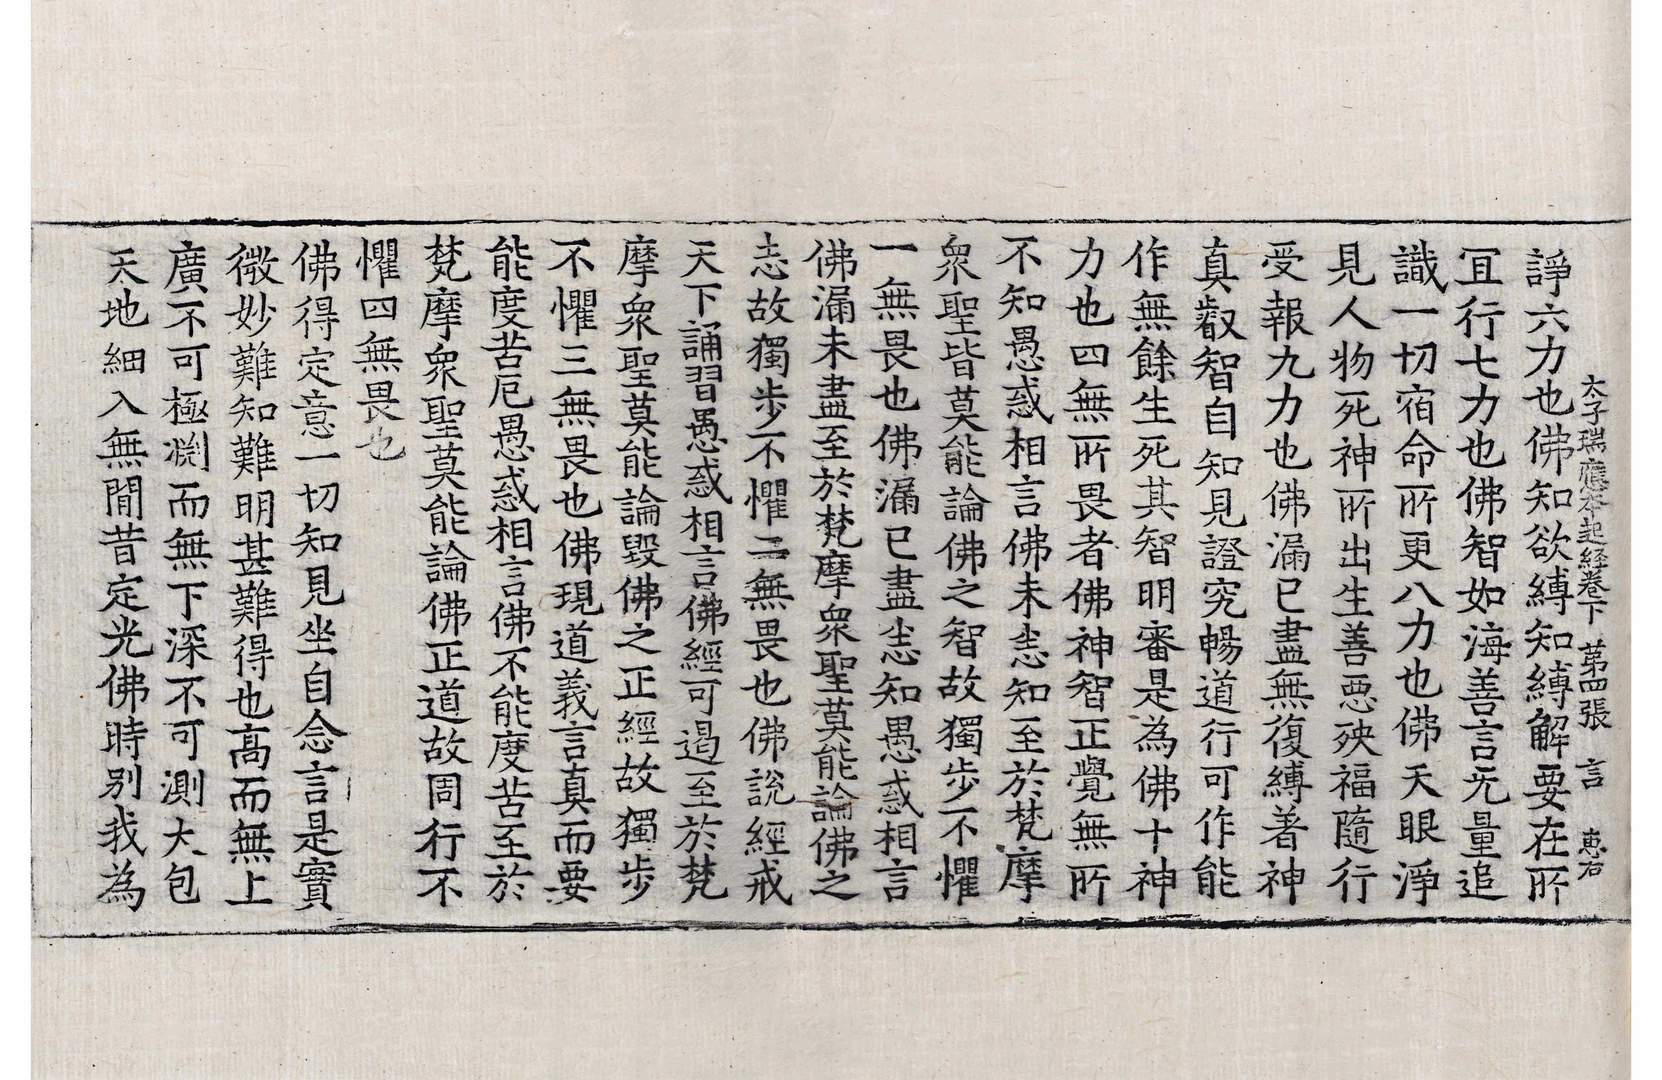 太子瑞應夲起經卷下　苐四張　言　惠石
諍六力也佛知欲縛知縛解要在所
冝行七力也佛智如海善言无量追
識一切宿命所更八力也佛天眼淨
見人物死神所出生善惡殃福隨行
受報九力也佛漏已盡無復縛著神
真叡智自知見證究暢道行可作能
作無餘生死其智明審是為佛十神
力也四無所畏者佛神智正覺無所
不知愚惑相言佛未悉知至於梵摩
衆聖皆莫能論佛之智故獨步不懼
一無畏也佛漏已盡悉知愚惑相言
佛漏未盡至於梵摩衆聖莫能論佛之
志故獨步不懼二無畏也佛說經戒
天下誦習愚惑相言佛經可遏至於梵
摩衆聖莫能論毀佛之正經故獨步
不懼三無畏也佛現道義言真而要
能度苦厄愚惑相言佛不能度苦至於
梵摩衆聖莫能論佛正道故周行不
懼四無畏也
佛得定意一切知見坐自念言是實
微妙難知難明甚難得也高而無上
廣不可極渕而無下深不可測大包
天地細入無間昔定光佛時別我為